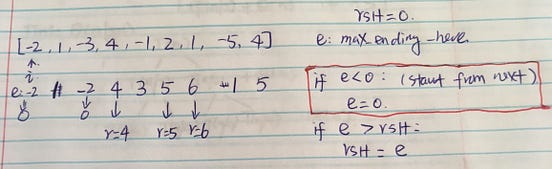 rslt=0.
[-2, 1, -3, 4, -1, 2, 1, -5, 4]
e: max ending-here.
↑
i
e:-2 1 -2 4 3 5 6 1 5
↓ ↓ ↓ ↓ ↓
0 0 r=4 r=5 r=6
if e<0: (start from next)
e=0.
if e > rslt:
rslt = e